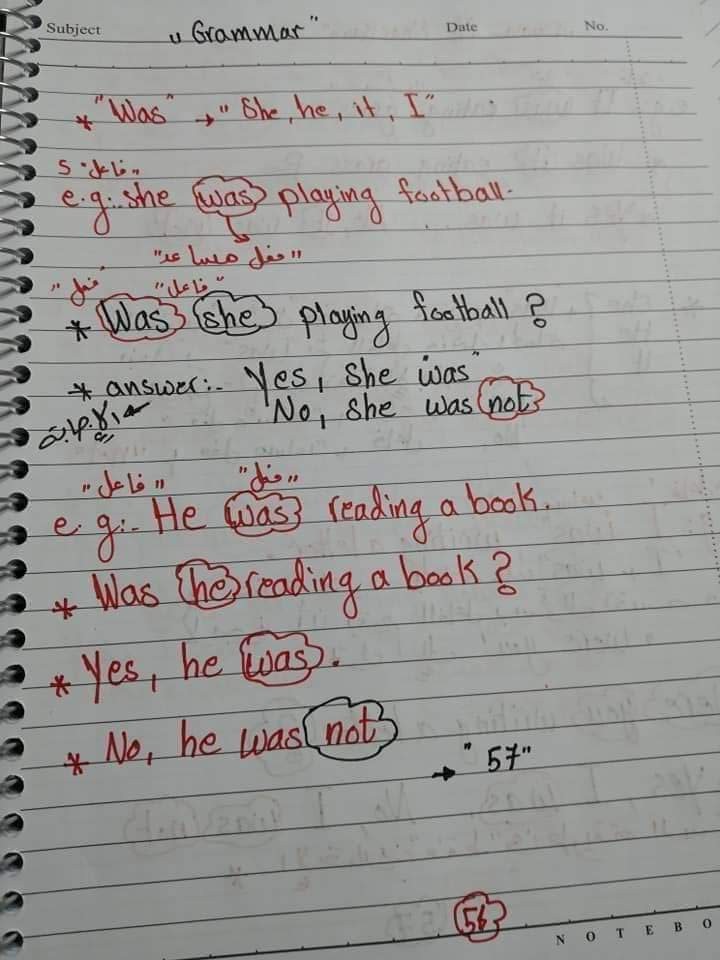 Subject „ Grammar " Date No.
* "Was" → "She, he, it, I"
S "فاعل"
e.g:. she was playing football.
"فعل مساعد"
"فعل" "فاعل"
* Was she playing football ?
* answer:- Yes, she was
No, she was not
"فاعل" "فعل"
e. g:- He was reading a book.
* Was he reading a book ?
* Yes, he was.
* No, he was not
→ "57"
56
NOTEBO